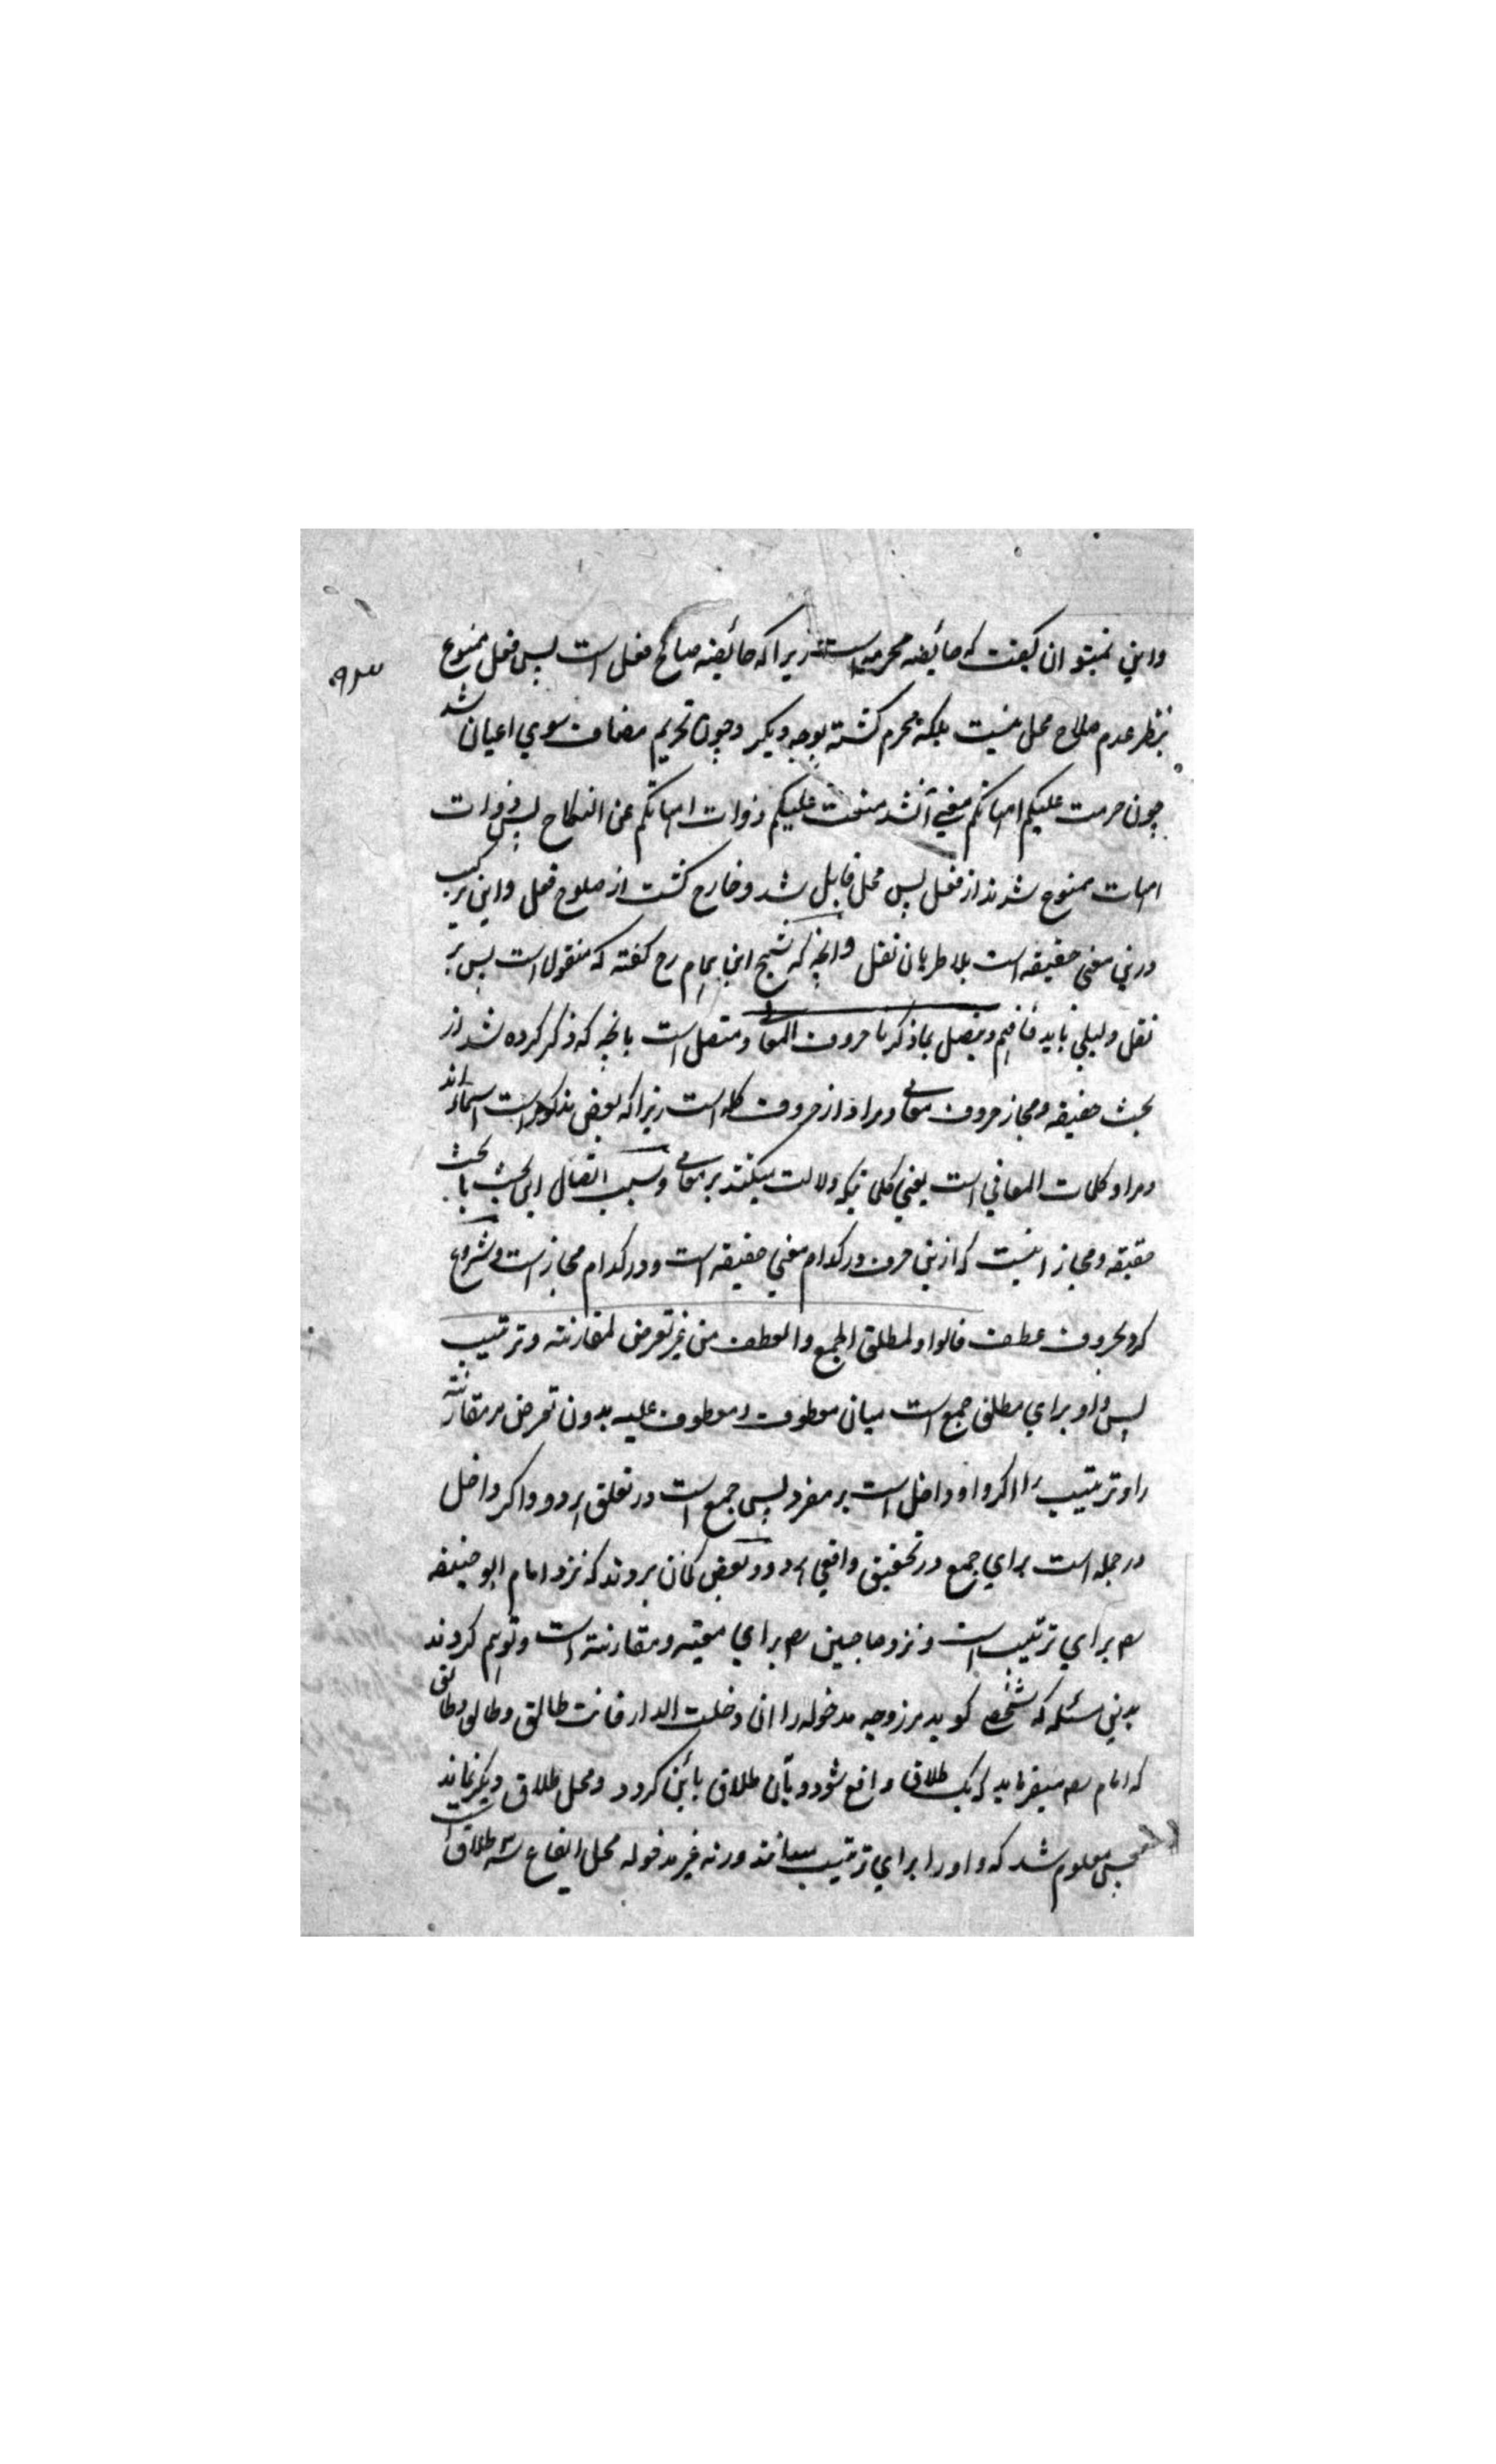 ۹۳
واین نمیتوان گفت که حائضه محرمه است زیرا که حائضه صالح فعل است پس فعل ممنوع
بنظر عدم صلاح محل نیست بلکه محرم گشته بوجه دیگر و چون تحریم مضاف سوی اعیان شد
چون حرمت علیکم امهاتکم معنی آنشد منعت علیکم ذوات امهاتکم عن النکاح پس ذوات
امهات ممنوع شدند از فعل پس محل قابل شد و خارج گشت از صلوح فعل و این ترکیب
درین معنی حقیقه است بلا طریان نقل و انچه که شیخ ابن همام رح گفته که منقول است پس بر
نقل دلیلی باید فافهم ویتصل بما ذکرنا حروف المعانی و متصل است بانچه که ذکر کرده شد از
بحث حقیقه و مجاز حروف معانی و مراد از حروف کلمه است زیرا که بعض مذکورات اسماء اند
و مراد کلمات المعانی است یعنی کلماتیکه دلالت میکنند بر معانی و سبب اتصال این بحث با بحث
حقیقه و مجاز اینست که ازین حرف در کدام معنی حقیقه است و در کدام مجاز است و شروع
کرد بحروف عطف فالواو لمطلق الجمع والعطف من غیر تعرض لمقارنة وترتیب
پس واو برای مطلق جمع است میان معطوف و معطوف علیه بدون تعرض مر مقارنته
را و ترتیب را اگر واو داخل است بر مفرد پس جمع است در تعلق هر دو و اگر داخل
در جمله است برای جمع در تحقیق واقعی هر دو و بعض گمان بردند که نزد امام ابو حنیفه
رح برای ترتیب است و نزد صاحبین رح برای معیته و مقارنته است و توهم کردند
بدین مسئله که شخصی گوید مر زوجه مدخوله را ان دخلت الدار فانت طالق وطالق وطالق
که امام رح میفرماید که یک طلاق واقع شود و بآن طلاق بائن گردد و محل طلاق دیگر نماند
پس معلوم شد که واو را برای ترتیب میدانند ورنه غیر مدخوله محل ایقاع سه طلاق است